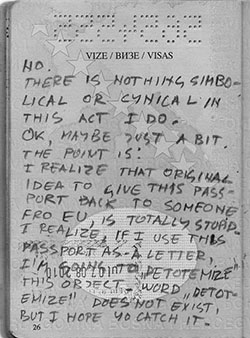 VIZE / ВИЗЕ / VISAS
NO.
THERE IS NOTHING SIMBO-
LICAL OR CYNICAL IN
THIS ACT I DO.
OK, MAYBE JUST A BIT.
THE POINT IS:
I REALIZE THAT ORIGINAL
IDEA TO GIVE THIS PASS-
PORT BACK TO SOMEONE
FRO EU, IS TOTALLY STUPID.
I REALIZE, IF I USE THIS
PASSPORT AS A LETTER,
I'M GOING TO „DETOTEMIZE"
THIS OBJECT. WORD „DETOT-
EMIZE" DOES NOT EXIST,
BUT I HOPE YO CATCH IT-
26